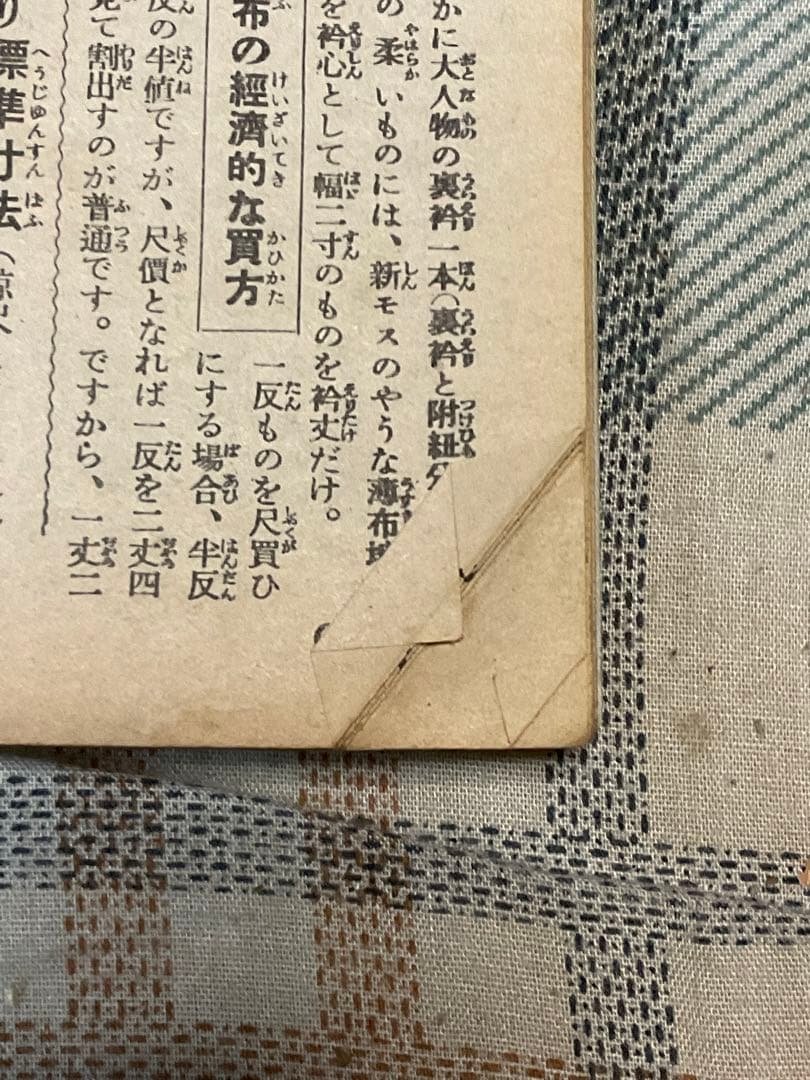 かに大人物の裏衿一本（裏衿と附紐
の柔いものには、新モスのやうな薄布地
を衿心として幅二寸のものを衿丈だけ。
布の經濟的な買方
一反ものを尺買ひ
にする場合、半反
反の半値ですが、尺價となれば一反を二丈四
見て割出すのが普通です。ですから、一丈二
り標準寸法